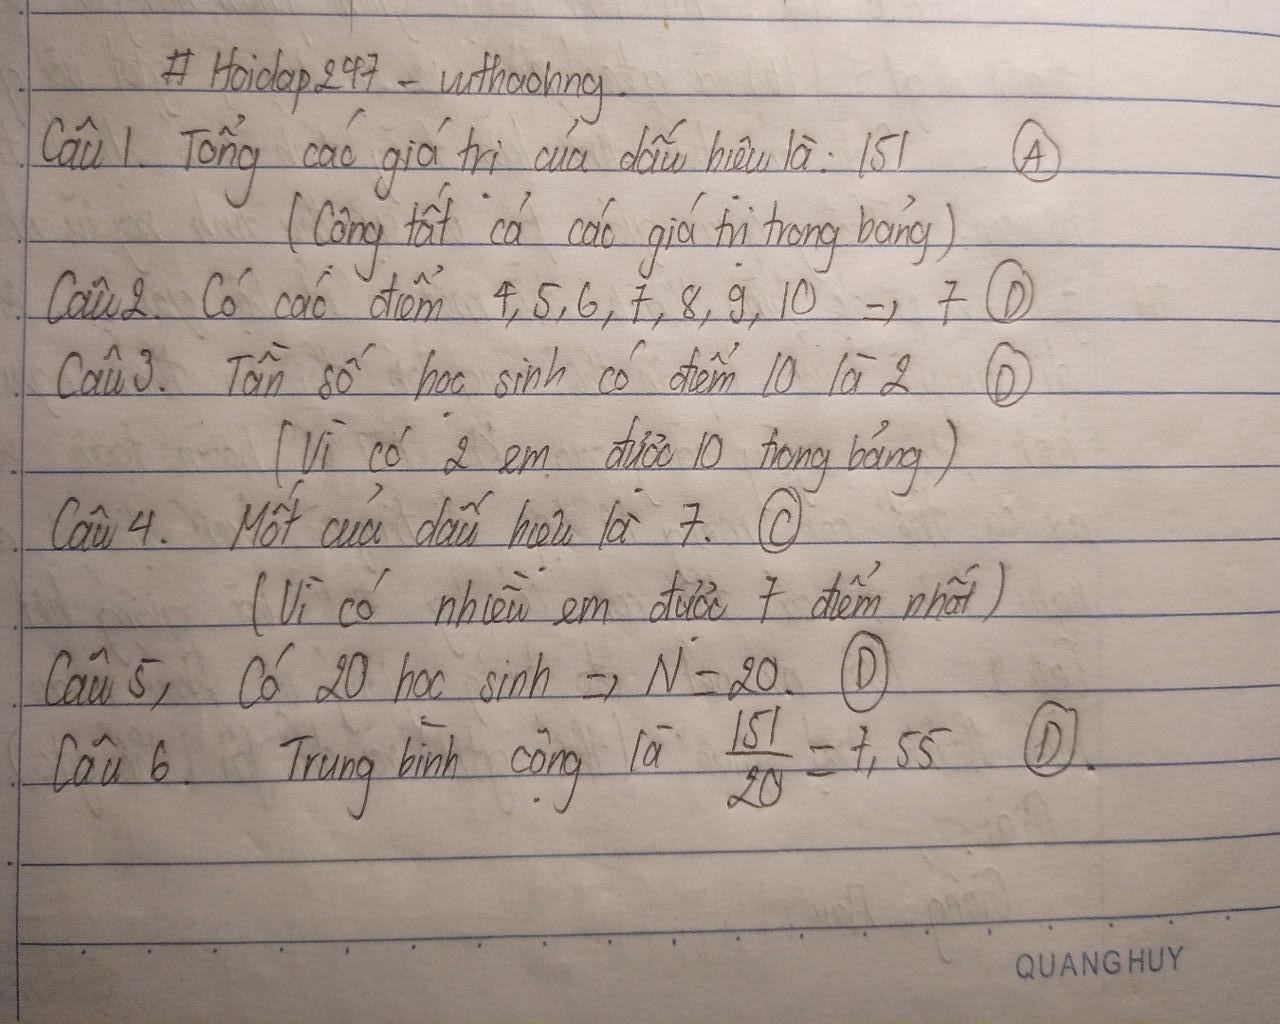 # Hoidap247 - vuthaohng.
Câu 1. Tổng các giá trị của dấu hiệu là: 151 A
(Cộng tất cả các giá trị trong bảng)
Câu 2. Có các điểm 4, 5, 6, 7, 8, 9, 10 => 7 D
Câu 3. Tần số học sinh có điểm 10 là 2 D
(Vì có 2 em được 10 trong bảng)
Câu 4. Mốt của dấu hiệu là 7. C
(Vì có nhiều em được 7 điểm nhất)
Câu 5, Có 20 học sinh => N = 20. D
Câu 6. Trung bình cộng là 151/20 = 7,55 D.
QUANG HUY